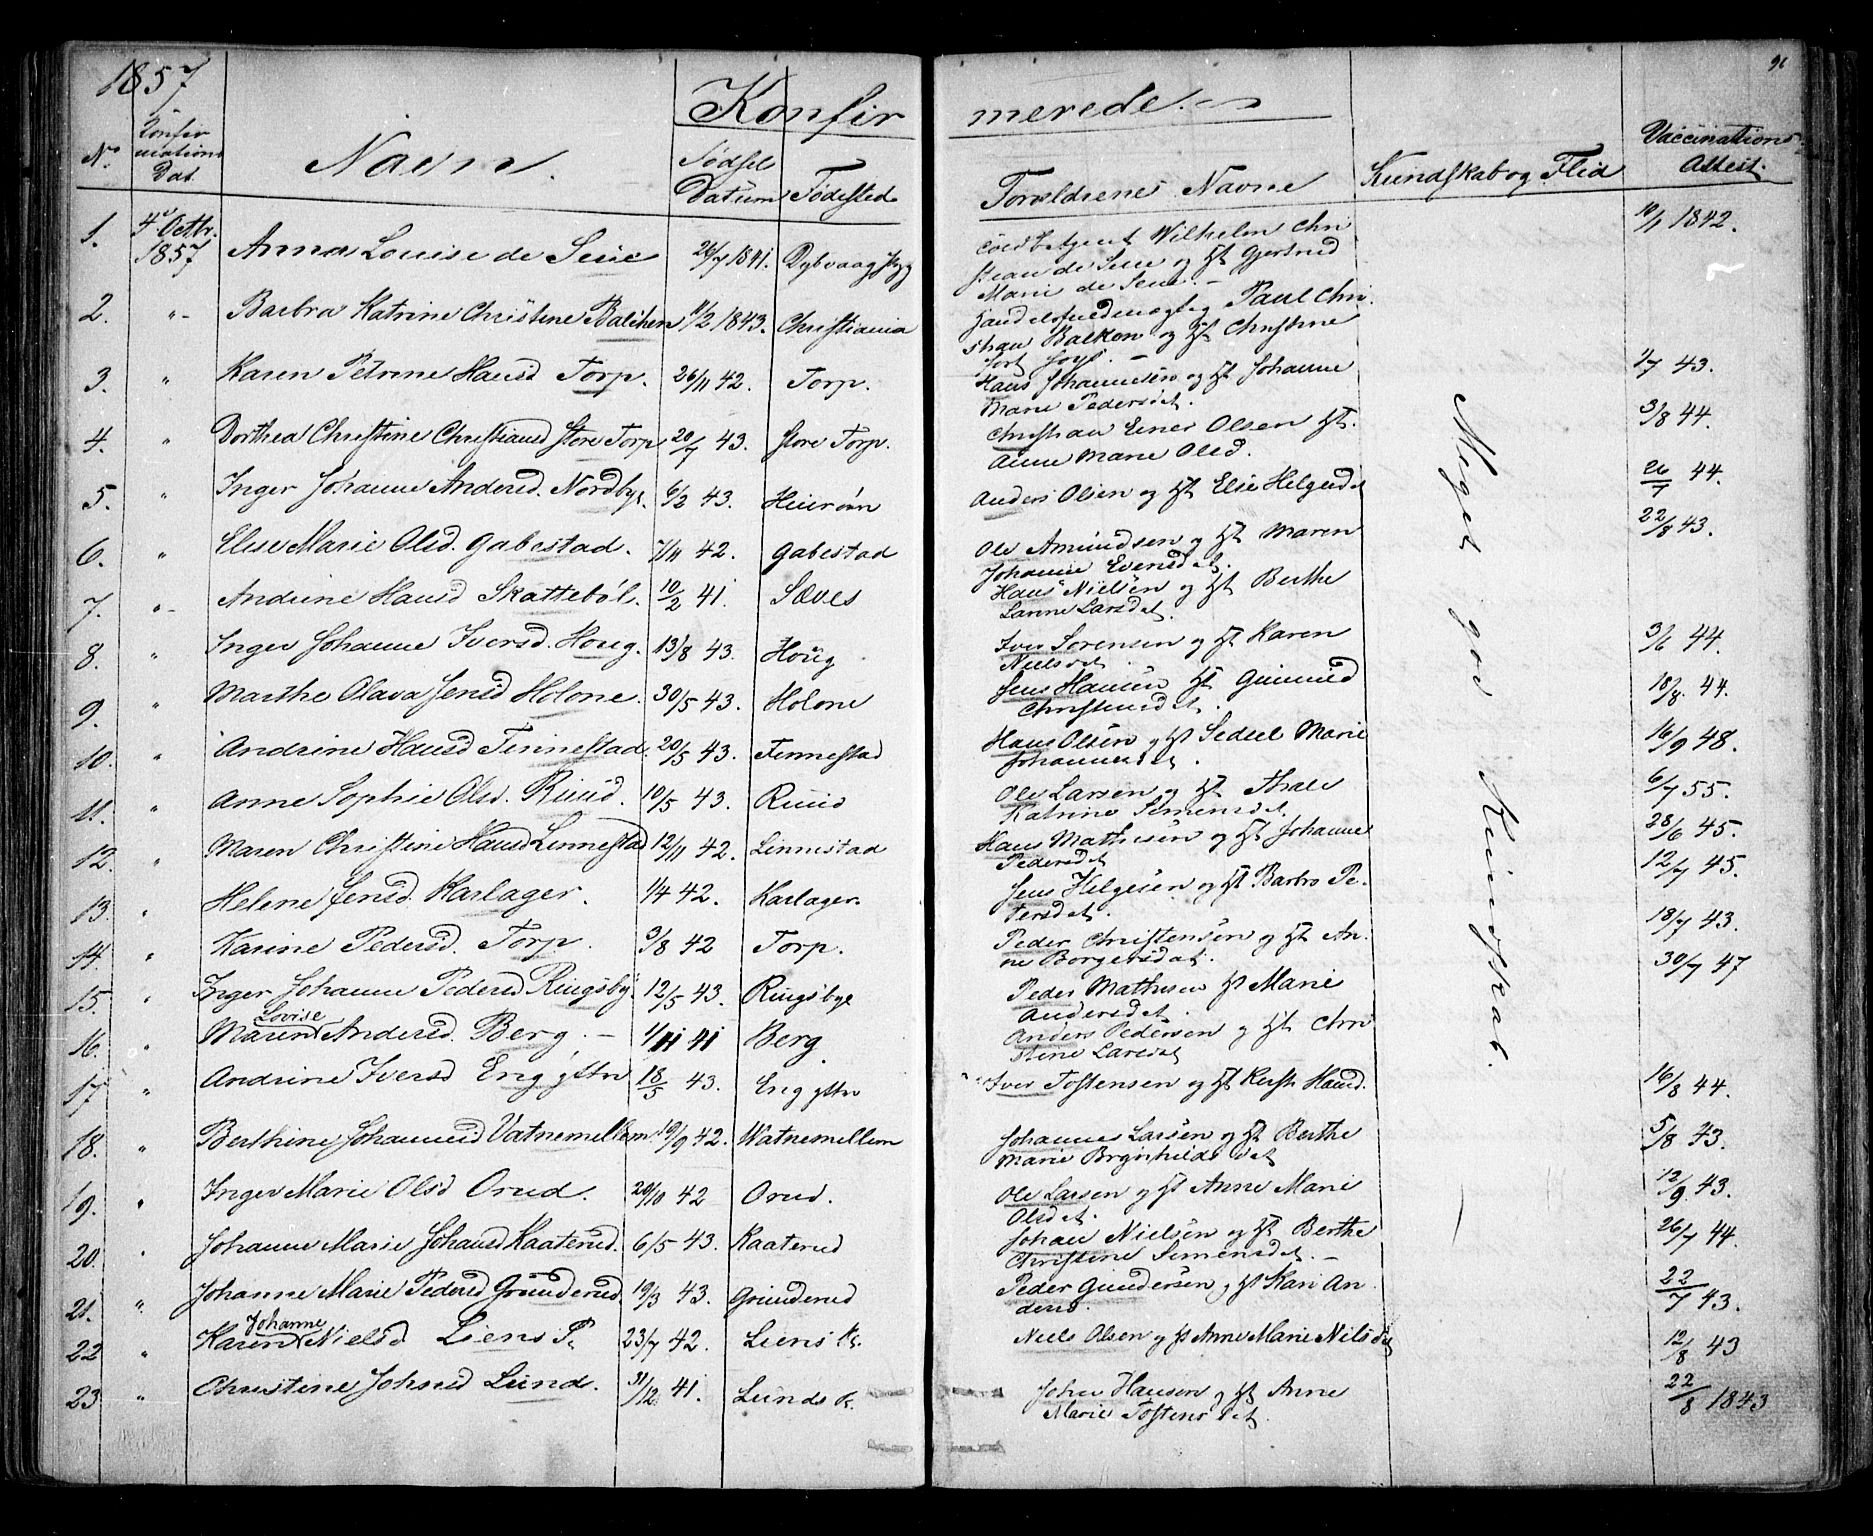 1857 Konfirmerede. 96
No. Konfirmations Dat. Navn. Fødsel Datum Fødested Forældrenes Navne Kundskab og Flid Vaccinations Attest.
1. 4de Octbr. 1857 Anna Louise de Seue 26/7 1841. Dybvaag Wilhelm Chri
stian de Seue og H Gjertrud 10/1 1842.
Marie de Seue. –
2. " – Barbra Katrine Christine Balchen 11/2 1843. Christiania Handelsfuldmægtig Paul Chri
stian Balken og H Christine
3. " Karen Petrine Hansd Torp. 26/11 42. Torp. Hans Johannesen og H Johanne 2/7 43.
Marie Pedersdat.
4. " Dorthea Christine Christiansd Store Torp 20/7 43. Store Torp. Christian Einer Olsen H. 3/8 44.
Anne Marie Olsd.
5. " Inger Johanne Andersd. Nordbye 6/2 43. Heierøen Anders Olsen og H Else Helgesdat 26/7 44.
6. " Elise Marie Olsd. Gabestad. 7/11 42. Gabestad Ole Amundsen og H Maren 22/8 43.
Johanne Evensdat.
7. " – Andrine Hansd Skattebøl. 10/2 41. Sæves Hans Nielsen og H Berthe
Lanne Larsdat.
8. " Inger Johanne Iversd. Houg. 13/8 43. Houg Iver Sørensen og H Karen 3/6 44.
Nielsdat
9. " Marthe Olava Jensd Holone. 30/5 43. Holone Jens Hansen H Gunnild 18/8. 44.
Christensdat.
10. " Andrine Hansd Finnestad. 20/5 43. Finnestad Hans Olsen og H Sedsel Marie 16/9 48.
Johannesdat.
11. " Anne Sophie Olsd. Ruud. 10/5 43. Ruud Ole Larsen og H Thale 6/7 55.
Katrine Simensdat.
12. " Maren Christine Hansd Linnestad 12/11 42. Linnestad Hans Mathisen og H Johanne 28/6 45.
Pedersdat
13. " Helene Jensd. Karlager. 1/4 42. Karlager. Jens Helgesen og H Barbro Pe- 12/7 45.
tersdat.
14. " Karine Pedersd. Torp. 9/8 42 Torp. Peder Christensen og H An- 18/7 43.
ne Borgersdat.
15. " Inger Johanne Pedersd Ringsby. 12/5 43. Ringsbye Peder Mathisen H Marie 30/7 47
Andersdat.
16. " Maren Lovise Andersd. Berg. – 1/11 41 Berg Anders Pedersen og H Chri
stine Larsdat
17. " Andrine Iversd Eng yttre 18/5 43. Eng yttre Iver Tostensen og H Kersti Hansd. 16/8 44.
18. " Berthine Johannesd Vatnemellem 19/9 42. Watnemellem Johannes Larsen og H Berthe 5/8 43.
Marie Brynhildsdat
19. " Inger Marie Olsd Orud. 20/10 42 Orud. Ole Larsen og H Anne Marie 12/9 43.
Olsdat.
20. " Johanne Marie Johansd Kaaterud. 6/5 43. Kaaterud Johan Nielsen og H Berthe 26/7 44.
Christine Simensdat. –
21. " Johanne Marie Pedersd Grunderud. 19/3 43. Grunderud Peder Gundersen og H Kari An 22/7 43.
dersd.
22 " Karen Johanne Nielsd Liens P. 23/7 42. Liens P. Niels Olsen og H Anne Marie Nilsdat 12/8 43
23. " Christine Johnsd Lund. 31/12 41. Lunds P. John Hansen og H Anne 22/8 1843
Marie Tostensdat.
Meget god Kundskab.